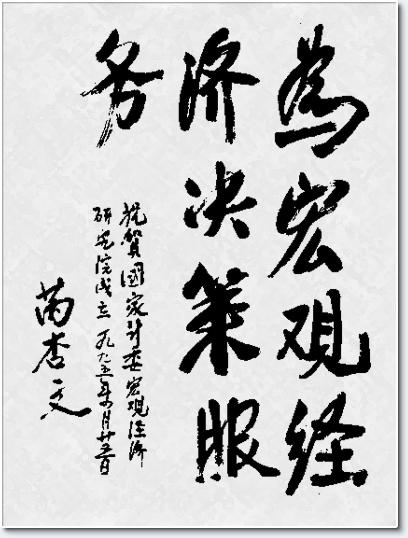 為宏观经
济决策服
务
祝贺国家计委宏观经济
研究院成立 一九九五年十月廿五日
芮杏文